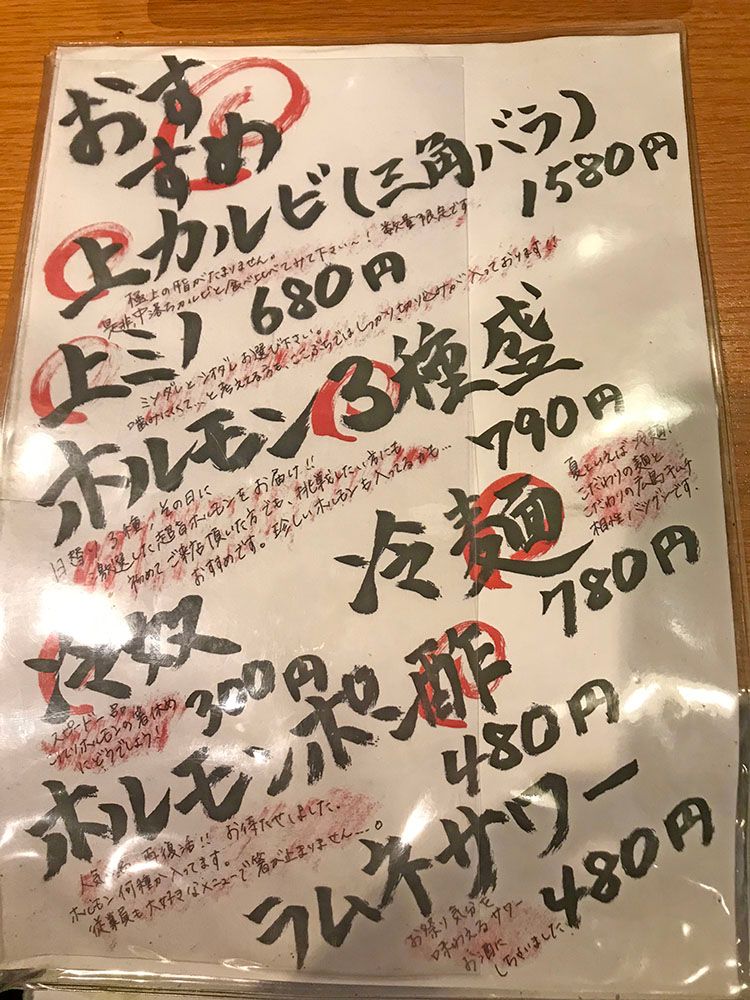 おす
すめ
上カルビ(三角バラ)
1580円
極上の脂がたまりません。
是非、中落ちカルビと食べ比べてみて下さい〜! 数量限定です
上ミノ 680円
ミソダレとシオダレお選び下さい。
噛みにくくて…と考えてる方も、こぶちではしっかり切り込みが入っております!!
ホルモン3種盛
790円
日替り3種、その日に
厳選した超旨ホルモンをお届け!!
初めてご来店頂いた方でも、挑戦したい方にも
おすすめです。珍しいホルモンも入ってるかも…
冷麺
780円
夏といえば冷麺!
こだわりの麺と
こだわりの広島キムチ
相性バツグンです。
冷奴
300円
スピード一品
ホルモンの箸休め
にどうでしょう!
ホルモンポン酢
480円
人気 再復活!! お待たせしました。
ホルモン何種か入ってます。
従業員も大好きなメニューで箸が止まりません…。
ラムネサワー
480円
お祭り気分を
味わえるサワー
お酒に
しちゃいました